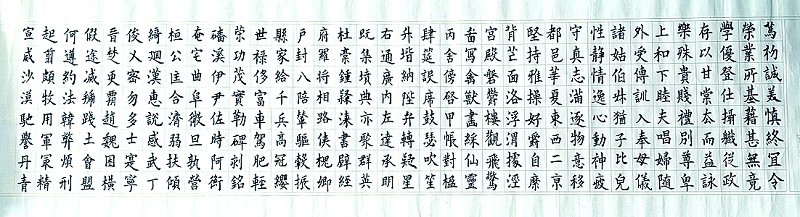 篤初誠美慎終宜令
榮業所基籍甚無竟
學優登仕攝職從政
存以甘棠去而益詠
樂殊貴賤禮別尊卑
上和下睦夫唱婦隨
外受傅訓入奉母儀
諸姑伯叔猶子比兒
性靜情逸心動神疲
守真志滿逐物意移
都邑華夏東西二京
堅持雅操好爵自縻
背芒面洛浮渭據涇
宮殿磐鬱樓觀飛驚
圖寫禽獸畫綵仙靈
丙舍傍啓甲帳對楹
肆筵設席鼓瑟吹笙
升堦納陛弁轉疑星
右通廣內左達承明
既集墳典亦聚群英
杜稾鍾隸漆書壁經
府羅將相路俠槐卿
戶封八陪輦驅轂振
縣家給千兵高冠纓
世祿侈富車駕肥輕
策功茂實勒碑刻銘
磻溪伊尹佐時阿衡
奄宅曲阜微旦孰營
桓公匡合濟弱扶傾
綺迴漢惠說感武丁
俊乂密勿多士寔寧
晉楚更霸趙魏困橫
假途滅虢踐土會盟
何遵約法韓弊煩刑
起翦頗牧用軍最精
宣威沙漠馳譽丹青